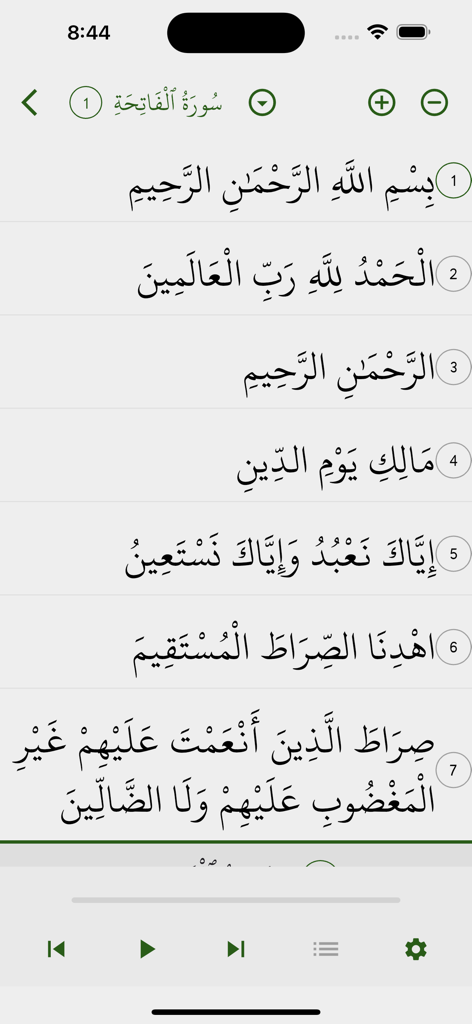 8:44
سُورَةُ ٱلْفَاتِحَةِ 1
1 بِسْمِ اللَّهِ الرَّحْمَٰنِ الرَّحِيمِ
2 الْحَمْدُ لِلَّهِ رَبِّ الْعَالَمِينَ
3 الرَّحْمَٰنِ الرَّحِيمِ
4 مَالِكِ يَوْمِ الدِّينِ
5 إِيَّاكَ نَعْبُدُ وَإِيَّاكَ نَسْتَعِينُ
6 اهْدِنَا الصِّرَاطَ الْمُسْتَقِيمَ
7 صِرَاطَ الَّذِينَ أَنْعَمْتَ عَلَيْهِمْ غَيْرِ
الْمَغْضُوبِ عَلَيْهِمْ وَلَا الضَّالِّينَ